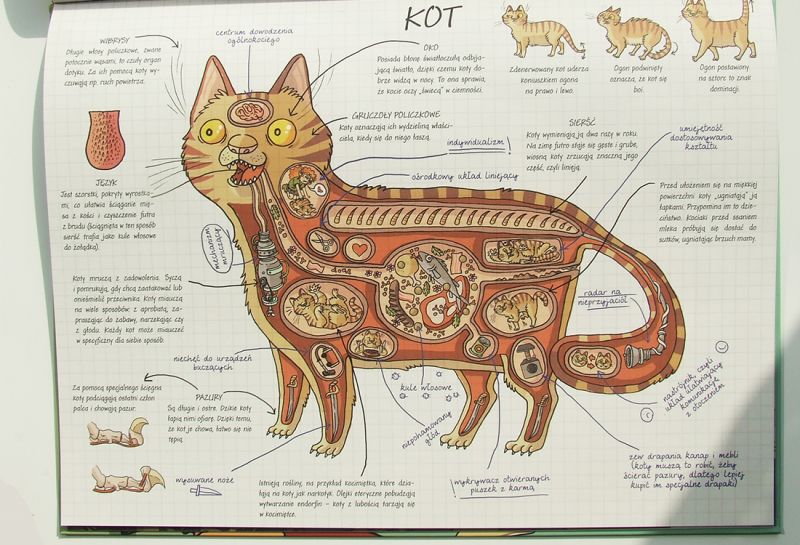 KOT
WIBRYSY
Długie włosy policzkowe, zwane
potocznie wąsami, to czuły organ
dotyku. Za ich pomocą koty wy-
czuwają np. ruch powietrza.
centrum dowodzenia
ogólnokociego
OKO
Posiada błonę światłoczułą odbija-
jącą światło, dzięki czemu koty do-
brze widzą w nocy. To ona sprawia,
że kocie oczy „świecą” w ciemności.
Zdenerwowany kot uderza
koniuszkiem ogona
na prawo i lewo.
Ogon podwinięty
oznacza, że kot się
boi.
Ogon postawiony
na sztorc to znak
dominacji.
GRUCZOŁY POLICZKOWE
Koty oznaczają ich wydzieliną właści-
ciela, kiedy się do niego łaszą.
indywidualizm!
ośrodkowy układ leniący
SIERŚĆ
Koty wymieniają ją dwa razy w roku.
Na zimę futro staje się gęste i grube,
wiosną koty zrzucają znaczną jego
część, czyli linieją.
umiejętność
dostosowywania
kształtu
JĘZYK
Jest szorstki, pokryty wyrostka-
mi, co ułatwia ściąganie mię-
sa z kości i czyszczenie futra
z brudu (ściągnięta w ten sposób
sierść trafia jako kule włosowe
do żołądka).
Przed ułożeniem się na miękkiej
powierzchni koty „ugniatają” ją
łapkami. Przypomina im to dzie-
ciństwo. Kociaki przed ssaniem
mleka próbują się dostać do
sutków, ugniatając brzuch mamy.
mechanizm
mruczący
Koty mruczą z zadowolenia. Syczą
i pomrukują, gdy chcą zaatakować lub
onieśmielić przeciwnika. Koty miauczą
na wiele sposobów z aprobatą, za-
praszając do zabawy, narzekając czy
z głodu. Każdy kot może miauczeć
w specyficzny dla siebie sposób.
radar na
nieprzyjaciół
niechęć do urządzeń
buczących
Za pomocą specjalnego ścięgna
kotki podciągają ostatni człon
palca i chowają pazur.
PAZURY
Są długie i ostre. Dzikie koty
łapią nimi ofiarę. Dzięki temu,
że kot je chowa, łatwo się nie
tępią.
kule włosowe
niepohamowany
głód
nastrojnik, czyli
układ ułatwiający
komunikację
z otoczeniem
wysuwane noże
Istnieją rośliny, na przykład kocimiętka, które dzia-
łają na koty jak narkotyk. Olejki eteryczne pobudzają
wytwarzanie endorfin – koty z lubością tarzają się
w kocimiętce.
wykrywacz otwieranych
puszek z karmą
zew drapania kanap i mebli
(koty muszą to robić, żeby
ścierać pazury, dlatego lepiej
kupić im specjalne drapaki)